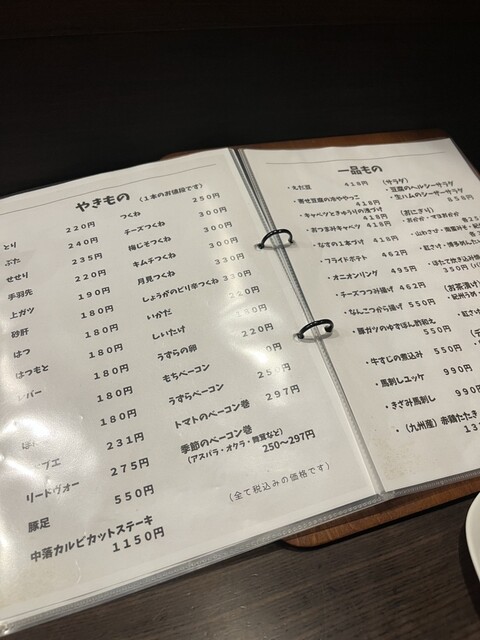 やきもの (1本のお値段です)
とり 220円
ぶた 240円
せせり 235円
手羽先 190円
上ガツ 180円
砂肝 180円
はつ 180円
はつもと 180円
バー 180円
231円
ブエ 275円
リードヴォー 550円
豚足
中落カルビカットステーキ
1150円
つくね 250円
チーズつくね 300円
梅じそつくね 300円
キムチつくね 300円
月見つくね 330円
しょうがのピリ辛つくね 330円
いかだ
しいたけ 220円
うずらの卵
もちベーコン
うずらベーコン
トマトのベーコン巻 297円
季節のベーコン巻
(アスパラ・オクラ・舞茸など)
250〜297円
(全て税込みの価格です)
一品もの
・えだ豆 418円
・寄せ豆腐の冷ややっこ
418円
・キャベツときゅうりの浅づけ
418円
・おつまみキャベツ 418円
・なすの1本づけ 418円
・フライドポテト 462円
・オニオンリング 495円
・チーズつつみ揚げ 462円
・なんこつから揚げ 550円
・豚ガツのゆずぽん酢和え
550円
・牛すじの煮込み 550円
・馬刺しユッケ 990円
・きざみ馬刺し 990円
・(九州産) 赤鶏たたき
(サラダ)
・豆腐のヘルシーサラダ
・生ハムのシーザーサラダ
858円
(おにぎり)
(お茶漬け)